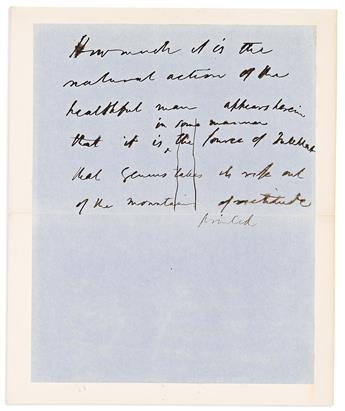 How much it is the
natural action of the
healthful man appears herein
in some manner
that it is ‸ the source of Intellect
that Genius takes its rise out
of the mountains of rectitude
printed